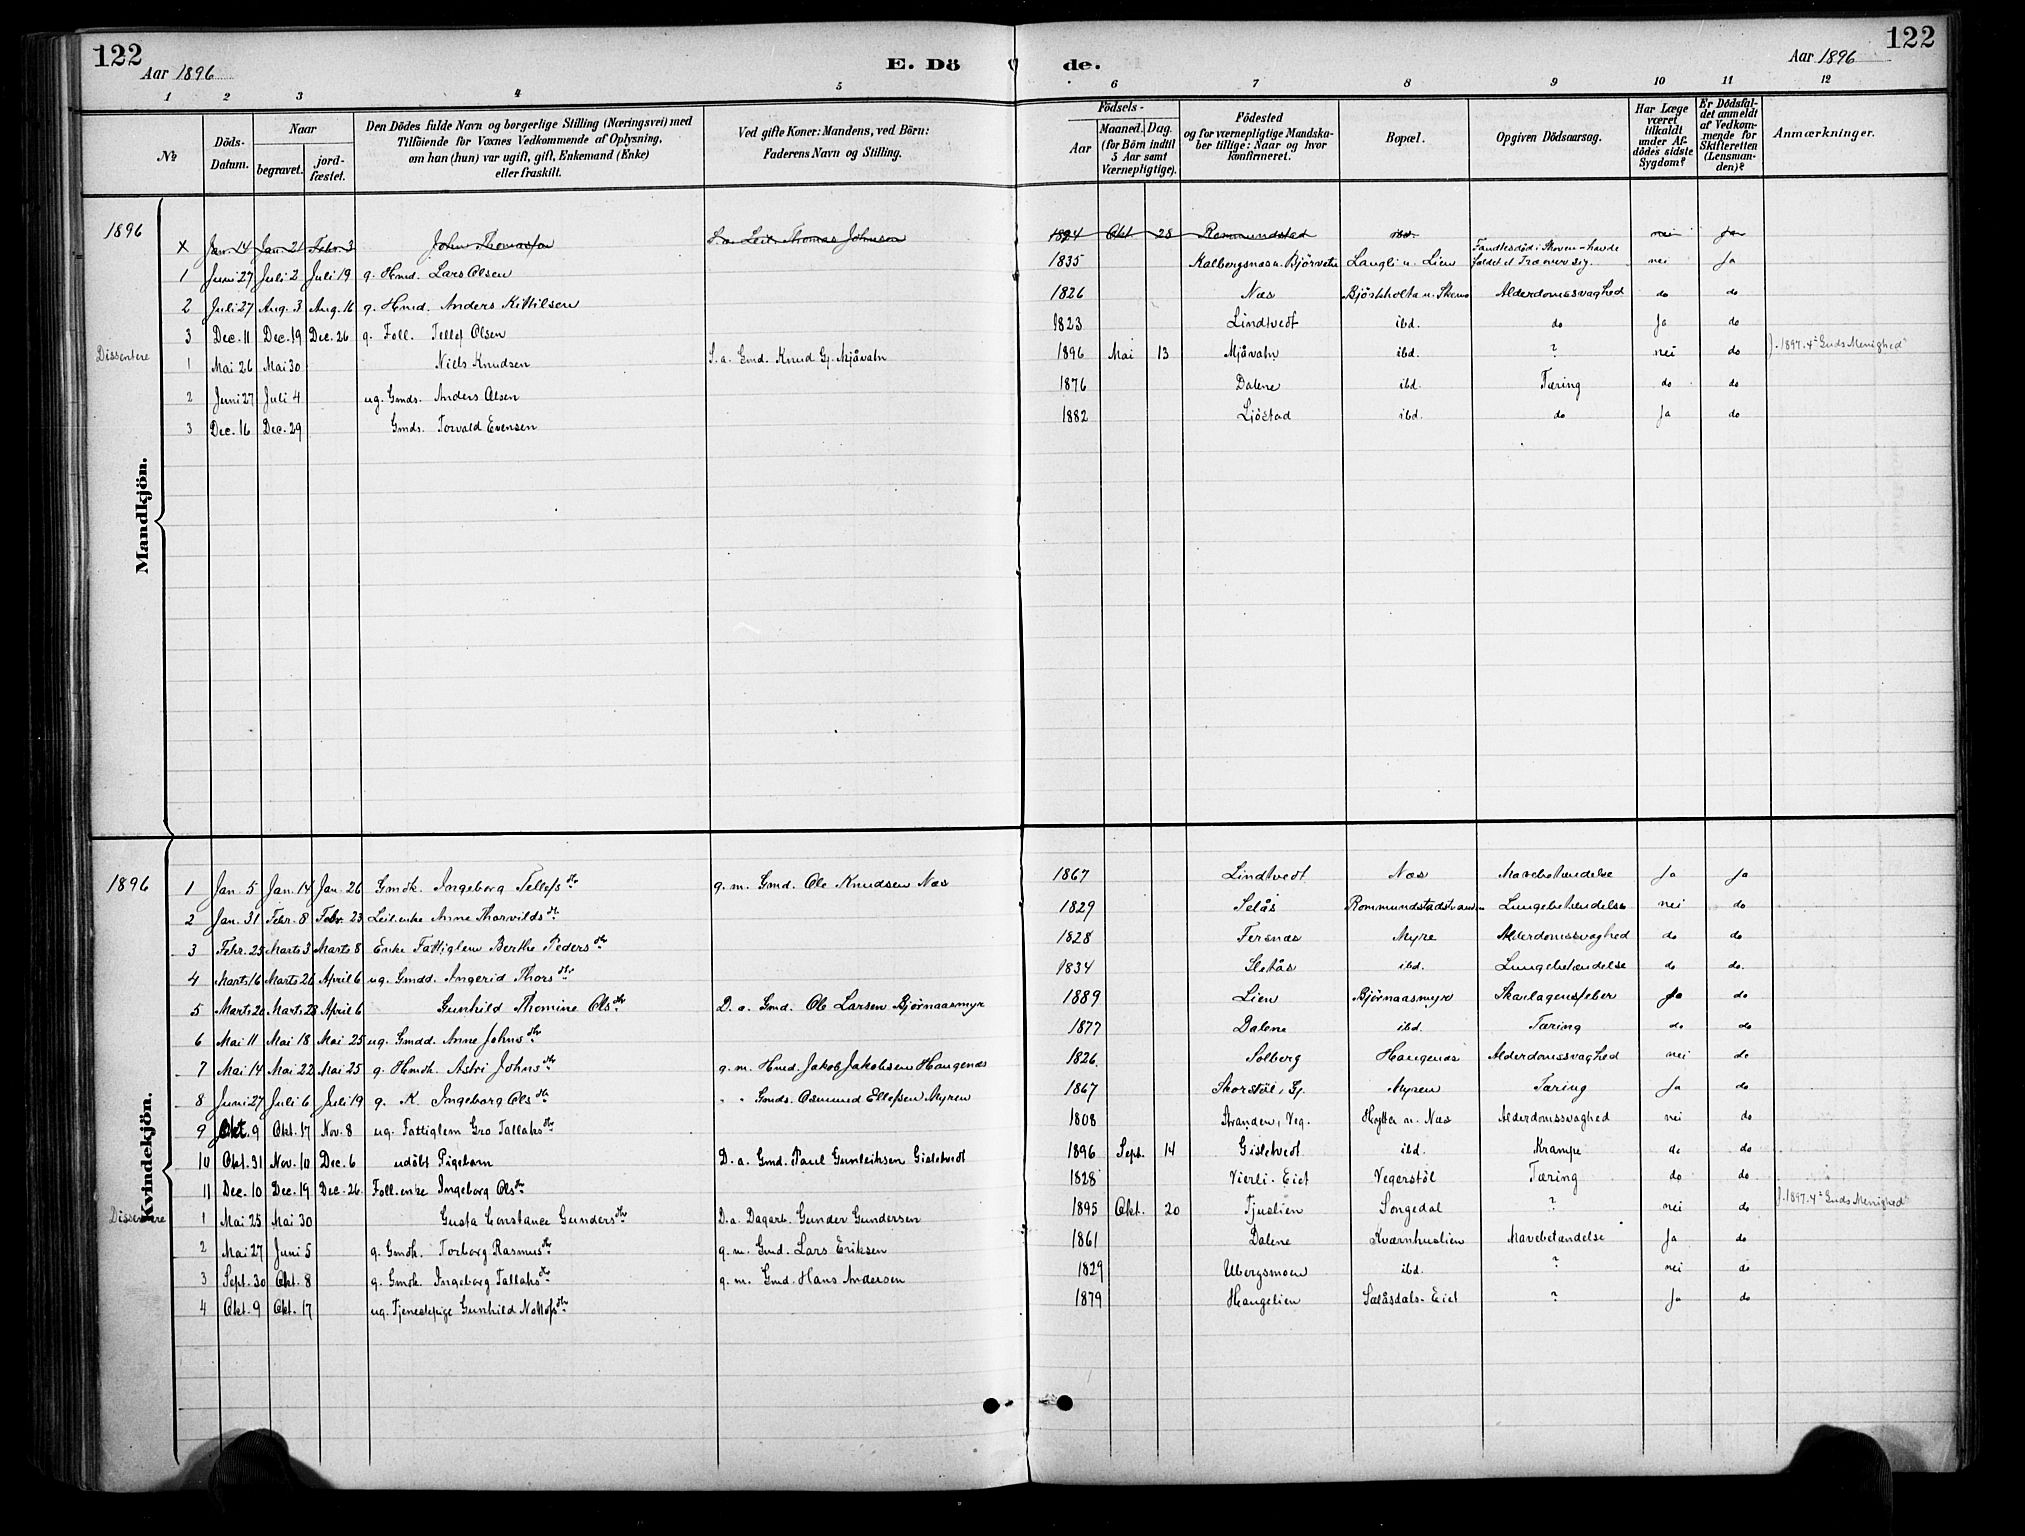 122
Aar 1896
E. Dö de.
Aar 1896
122
1 2 3 4 5 6 7 8 9 10 11 12
No
Döds-Datum.
Naar
begravet.
jord-fæstet.
Den Dödes fulde Navn og borgerlige Stilling (Næringsvei) med
Tilföiende for Voxnes Vedkommende af Oplysning,
om han (hun) var ugift, gift, Enkemand (Enke)
eller fraskilt.
Ved gifte Koner: Mandens, ved Börn:
Faderens Navn og Stilling.
Födsels-
Aar
Maaned. Dag.
(for Börn indtil
5 Aar samt
Værnepligtige).
Födested
og for værnepligtige Mandska-
ber tillige: Naar og hvor
konfirmeret.
Bopæl.
Opgiven Dödsaarsag.
Har Læge
været
tilkaldt
under Af-
dödes sidste
Sygdom?
Er Dödsfal-
det anmeldt
af Vedkom-
mende for
Skifteretten
(Lensman-
den)?
Anmærkninger.
Mandkjön.
1896
x Jan. 14 Jan. 21 Febr. 3 John Thomassen S. a. Leil. Thomas Johnsen 1894 Okt 28 Rommundstad ibd. nei Ja
1 Juni 27 Juli 2 Juli 19 g. Hmd. Lars Olsen 1835 Kalbergsnas u. Björvatn Langli u. Lien Fandtes död i Skoven - havde faldet et Træ over sig. nei Ja
2 Juli 27 Aug. 3 Aug. 16 g. Hmd. Anders Kittilsen 1826 Næs Björkholt u. Skomo Alderdomssvaghed do do
3 Dec. 11 Dec. 19 Dec. 26 g. Foll. Tellef Olsen 1823 Lindtvedt ibd. do Ja do
Dissentere
1 Mai 26 Mai 30 Niels Knudsen S. a. Gmd. Knud Gj. Mjåvatn 1896 Mai 13 Mjåvatn ibd. ? nei do J. 1897. 4 "Guds Menighed"
2 Juni 27 Juli 4 ug. Gmds. Anders Olsen 1876 Dalene ibd. Tæring do do
3 Dec. 16 Dec. 29 Gmds. Torvald Evensen 1882 Ljöstad ibd. do Ja do
Kvindekjön.
1896
1 Jan. 5 Jan. 14 Jan. 26 Gmdk. Ingeborg Tellefsdtr g. m. Gmd. Ole Knudsen Næs 1867 Lindtvedt Næs Mavebetændelse Ja Ja
2 Jan. 31 Febr. 8 Febr. 23 Leil. enke Anne Thorvildsdtr 1829 Selås Rommundstadstranden Lungebetændelse nei do
3 Febr. 25 Marts 3 Marts 8 Enke Fattiglem Berthe Pedersdtr 1828 Tersnæs Myre Alderdomssvaghed do do
4 Marts 16 Marts 26 April 6 ug. Gmdd. Ingerid Thorsdtr 1834 Sletås ibd. Lungebetændelse do do.
5 Marts 20 Marts 28 April 6 Gunhild Thomine Olsdtr D. a. Gmd. Ole Larsen Bjørnaasmyr 1889 Lien Bjørnaasmyr Skarlagensfeber Ja do
6 Mai 11 Mai 18 Mai 25 ug. Gmdd. Anne Johnsdtr 1877 Dalene ibd. Tæring do do
7 Mai 14 Mai 22 Mai 25 g. Hmdk. Astri Johnsdtr g. m. Hmd. Jakob Jakobsen Haugenæs 1826 Solberg Haugenæs Alderdomssvaghed nei do
8 Juni 27 Juli 6 Juli 19 g. K. Ingeborg Olsdtr " " Gmds. Osmund Ellefsen Myren 1867 Skorstöl, Gj. Myren Tæring Ja do
9 Okt. 9 Okt. 17 Nov. 8 ug. Fattiglem Gro Tallaksdtr 1808 Stranden, Veg. Hytta u. Næs Alderdomssvaghed nei do
10 Okt. 31 Nov. 10 Dec. 6 udöbt Pigebarn D. a. Gmd. Paul Gunleiksen Gisletvedt 1896 Sept. 14 Gisletvedt ibd. Krampe do do
11 Dec. 10 Dec. 19 Dec. 26 Foll. enke Ingeborg Olsdtr 1828 Vierli. Eiet Vegerstöl Tæring do do
Dissentere
1 Mai 25 Mai 30 Gusta Constance Gundersdtr D. a. Dagarb. Gunder Gundersen 1895 Okt. 20 Tjuslien Songedal ? nei do J. 1897. 4 "Guds Menighed"
2 Mai 27 Juni 5 g. Gmdk. Torborg Rasmusdtr g. m. Gmd. Lars Eriksen 1861 Dalene Kværnhuslien Mavebetændelse Ja do
3 Sept. 30 Okt. 8 g. Gmdk. Ingeborg Tallaksdtr g. m. Gmd. Hans Andersen 1829 Ubergsmoen ibd. ? nei do
4 Okt. 9 Okt. 17 ug. Tjenestepige Gunhild Nottofsdtr 1879 Haugelien Selåsdals-Eiet ? Ja do